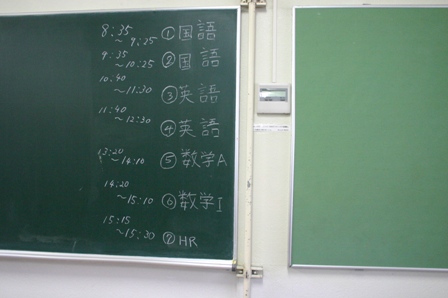 8:35
～9:25 ①国語
9:35
～10:25 ②国語
10:40
～11:30 ③英語
11:40
～12:30 ④英語
13:20
～14:10 ⑤数学A
14:20
～15:10 ⑥数学I
15:15
～15:30 ⑦HR